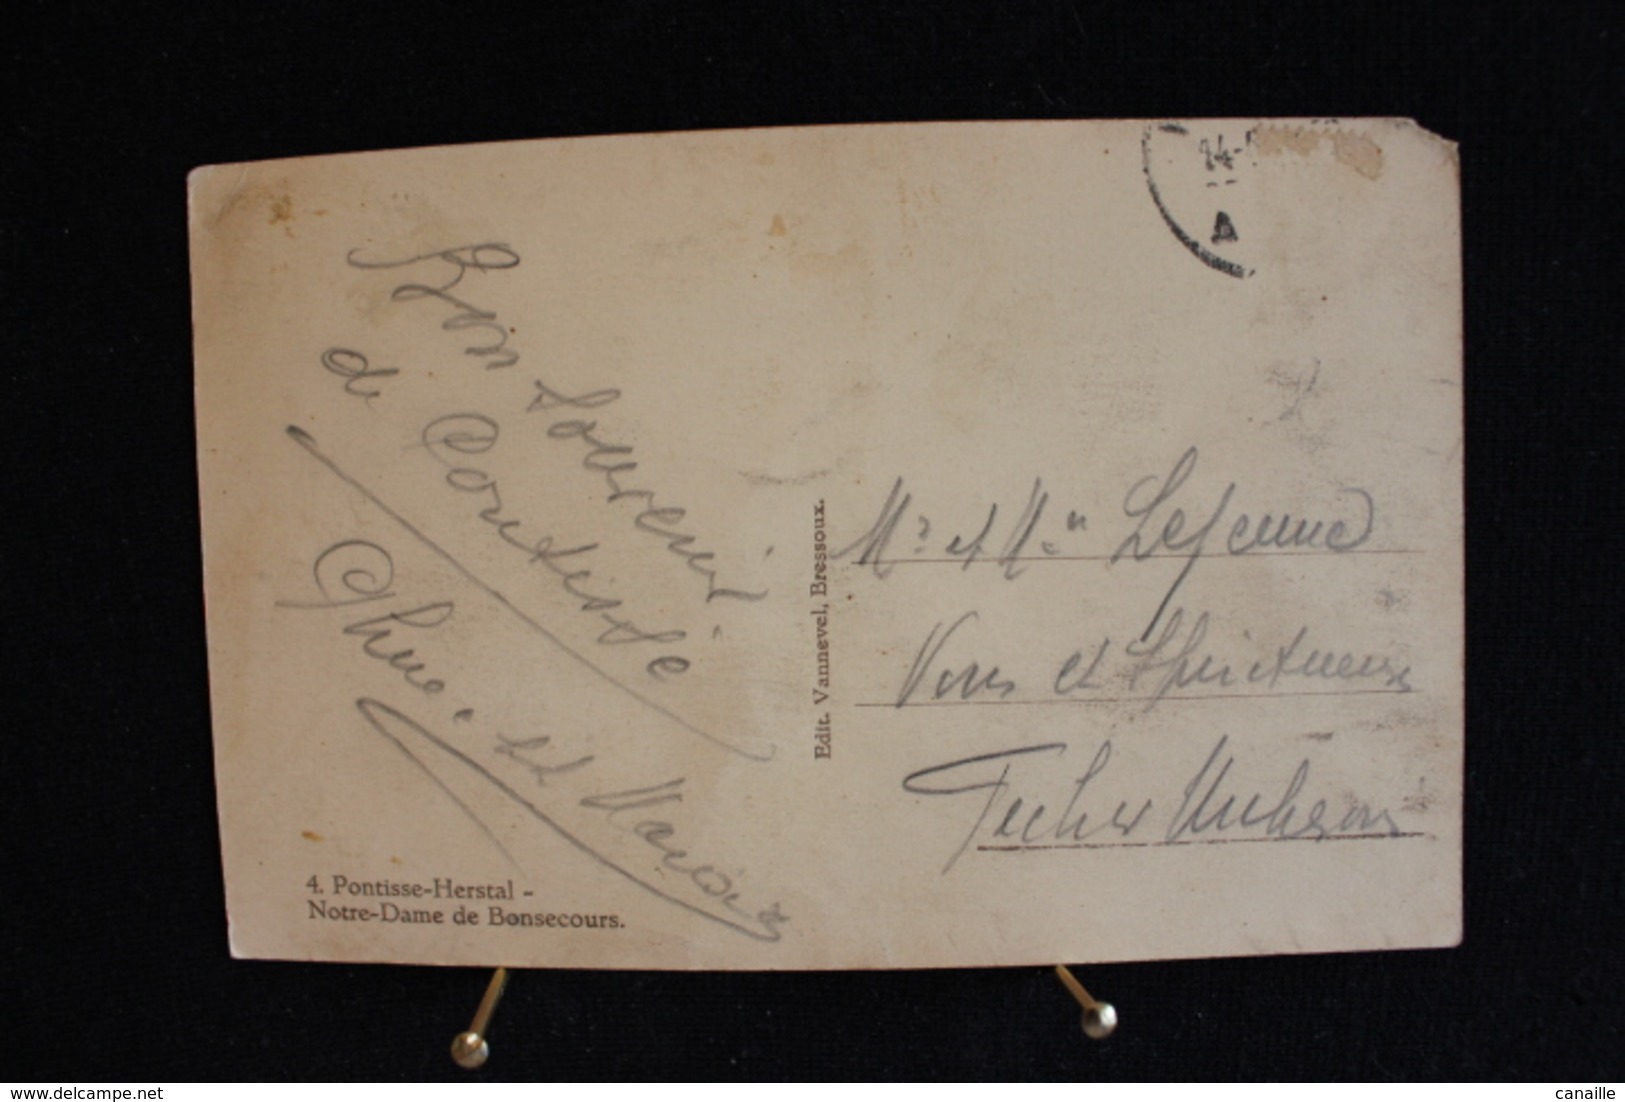 Bon Souvenir
de Pontisse
et
4. Pontisse-Herstal -
Notre-Dame de Bonsecours.
Edit. Vannevel, Bressoux.
14-
A
Mr et Mme Lejeune
Vins et Spiritueux
www.delcampe.net
canaille